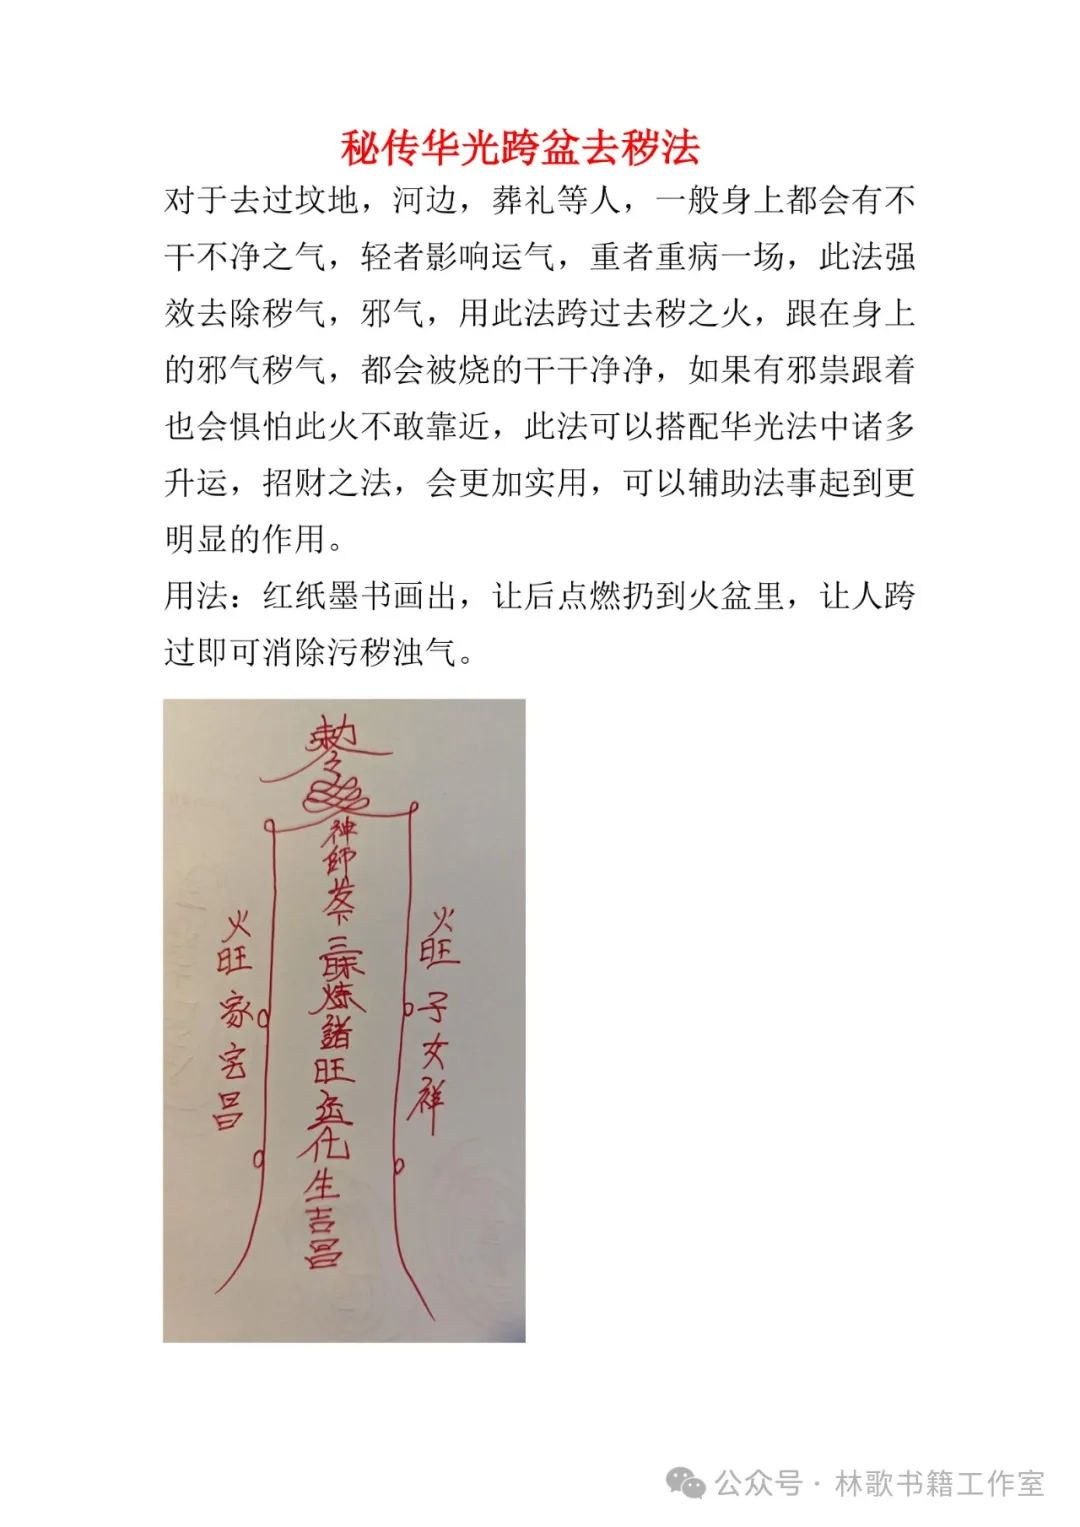 秘传华光跨盆去秽法
对于去过坟地，河边，葬礼等人，一般身上都会有不
干不净之气，轻者影响运气，重者重病一场，此法强
效去除秽气，邪气，用此法跨过去秽之火，跟在身上
的邪气秽气，都会被烧的干干净净，如果有邪祟跟着
也会惧怕此火不敢靠近，此法可以搭配华光法中诸多
升运，招财之法，会更加实用，可以辅助法事起到更
明显的作用。
用法：红纸墨书画出，让后点燃扔到火盆里，让人跨
过即可消除污秽浊气。
勅令
神師发下三昧煉諸旺运化生吉昌
火旺子女祥
火旺家宅昌
公众号·林歌书籍工作室